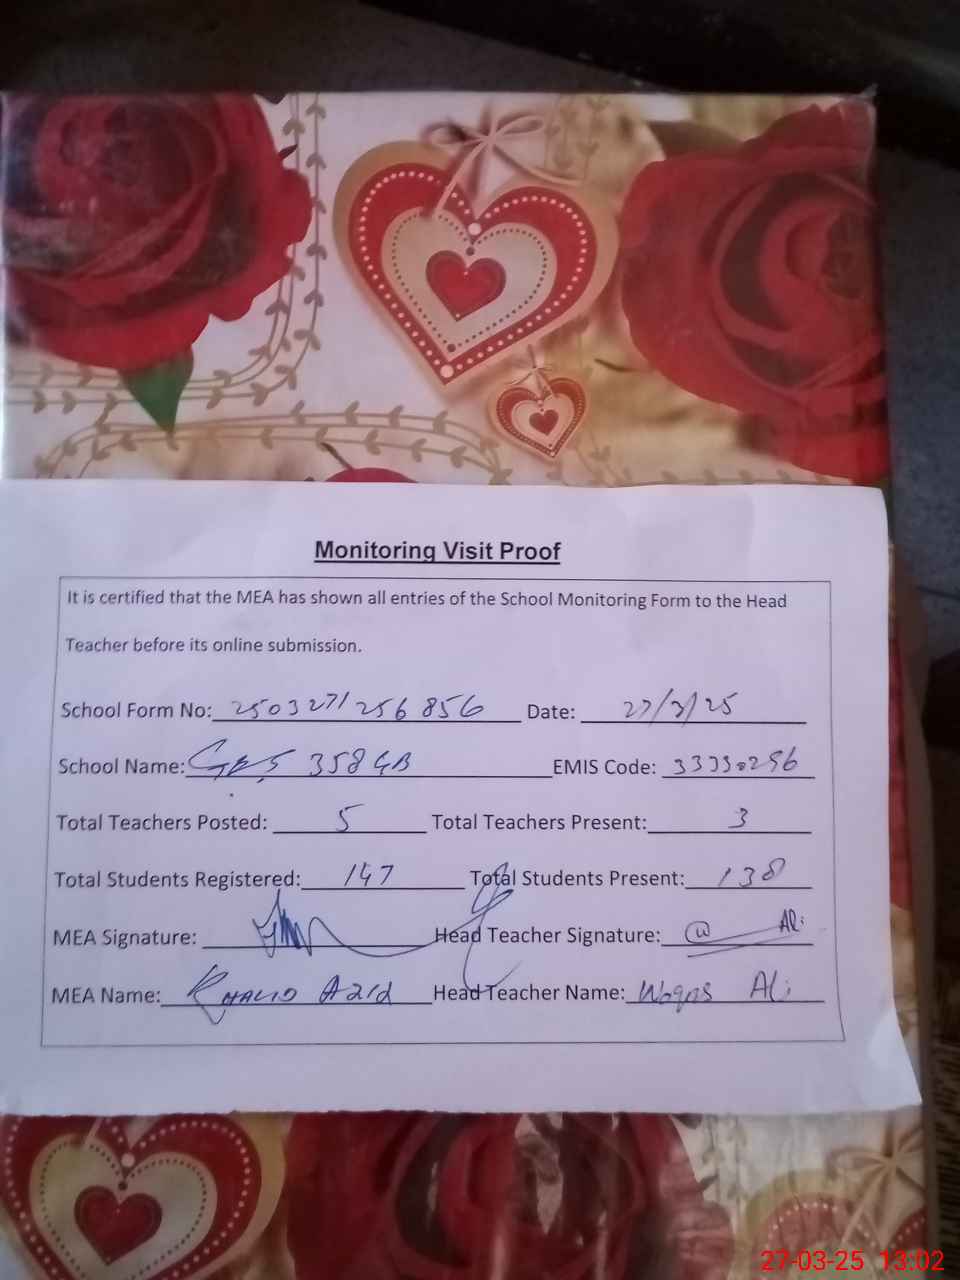 Monitoring Visit Proof
It is certified that the MEA has shown all entries of the School Monitoring Form to the Head
Teacher before its online submission.
School Form No: 250327/256856 Date: 27/3/25
School Name: GPS 358 GB EMIS Code: 33330296
Total Teachers Posted: 5 Total Teachers Present: 3
Total Students Registered: 147 Total Students Present: 138
MEA Signature: Head Teacher Signature: Ali
MEA Name: Khalid Head Teacher Name: Waqas Ali
27-03-25 13:02